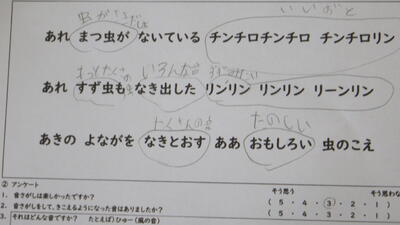 いいおと
あれ まつ虫が ないている チンチロチンチロ チンチロリン
もっとたくさんの虫 いろんな音
あれ すず虫も なき出した リンリン リンリン リーンリン
たくさんの音 たのしい
あきの よながを なきとおす ああ おもしろい 虫のこえ
② アンケート
そう思う そう思わな
1. 音さがしは楽しかったですか? ( 5 ・ 4 ・ ③ ・ 2 ・ 1 )
2. 音さがしをして、きこえるようになった音はありましたか? ( 5 ・ 4 ・ 3 ・ 2 ・ 1 )
3. それはどんな音ですか? たとえば)ひゅー(風の音)